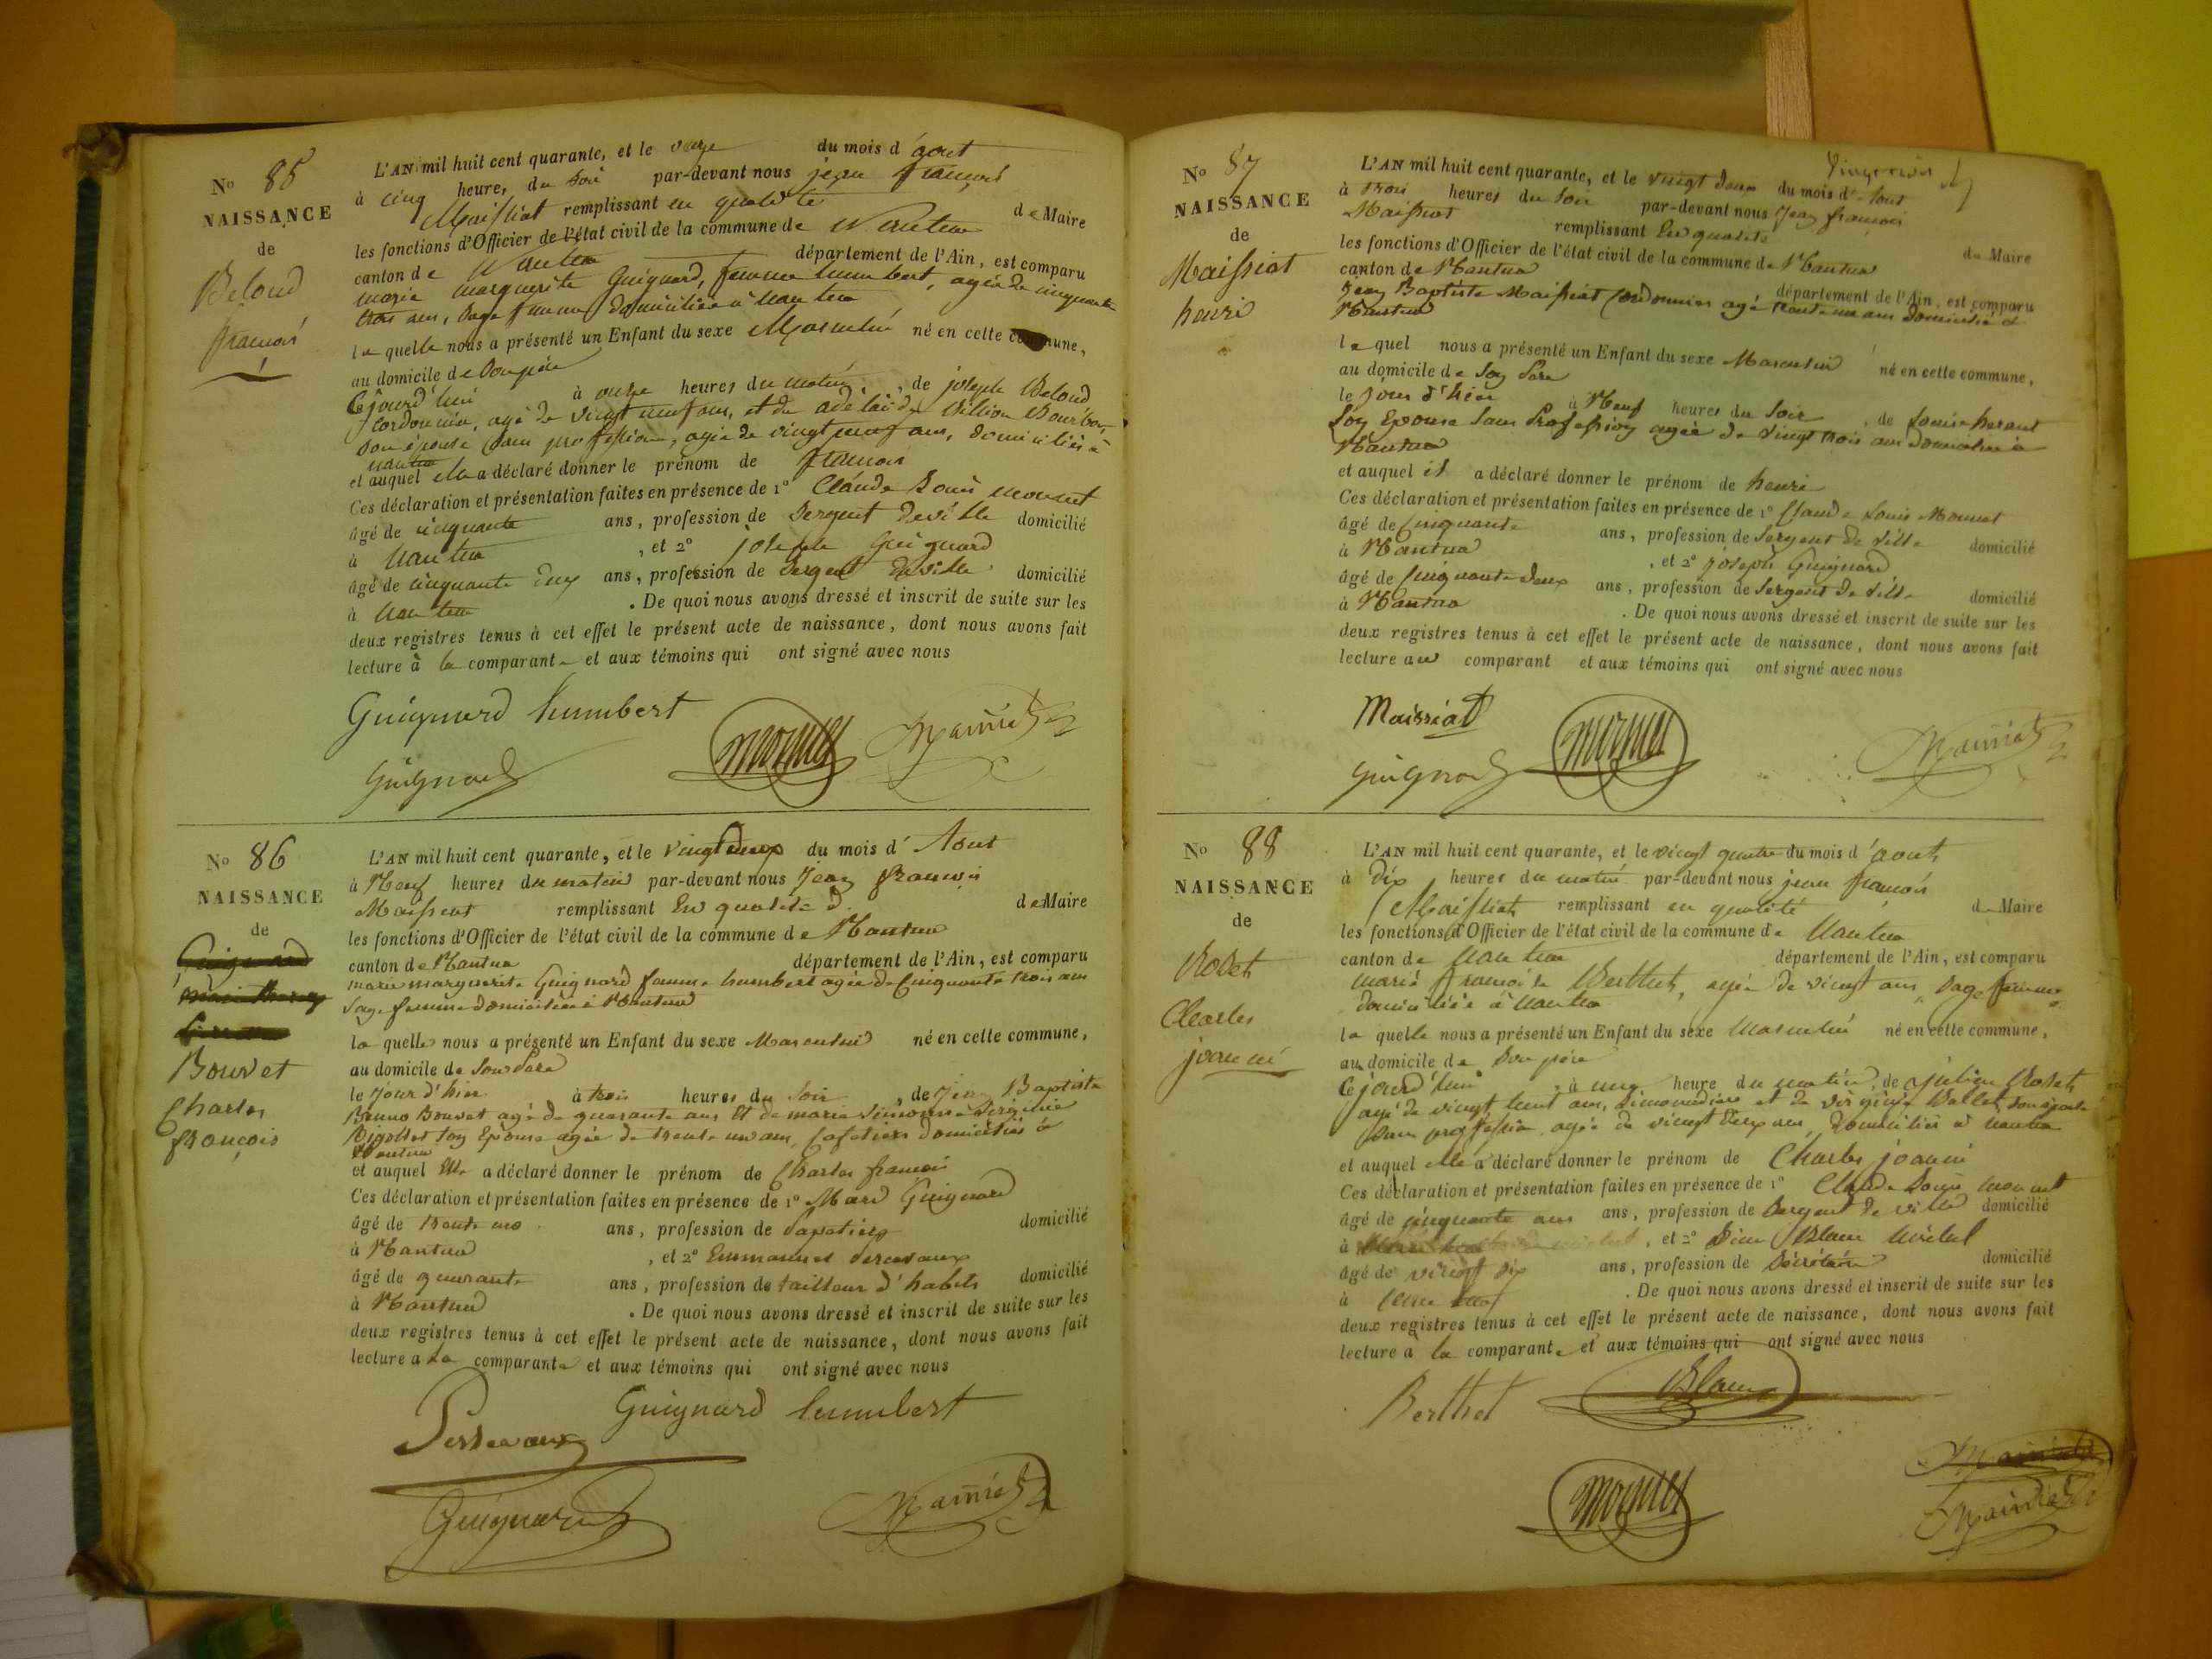 N° 85
NAISSANCE
de
Beloud
françois
L'AN mil huit cent quarante, et le du mois d'aout
à cinq heures du soir par-devant nous jean françois
Maissiat remplissant en qualité de Maire
les fonctions d'Officier de l'état civil de la commune de Nantua
canton de Nantua département de l'Ain, est comparu
marie marguerite Guignard, femme humbert, agée de cinquante
trois ans, sage femme domiciliée à nantua
laquelle nous a présenté un Enfant du sexe Masculin né en cette commune,
au domicile de son père
cejourd'hui à onze heures du matin, de joseph Beloud
cordonnier, agé de vingt neuf ans, et de adélaïde
son épouse sans profession, agée de vingt neuf ans, domiciliés à
nantua
et auquel elle a déclaré donner le prénom de françois
Ces déclaration et présentation faites en présence de 1° Claude Louis monnet
âgé de cinquante ans, profession de Sergent de ville domicilié
à nantua, et 2° joseph Guignard
âgé de cinquante deux ans, profession de sergent de ville domicilié
à nantua. De quoi nous avons dressé et inscrit de suite sur les
deux registres tenus à cet effet le présent acte de naissance, dont nous avons fait
lecture à la comparante et aux témoins qui ont signé avec nous
Guignard humbert
monnet Maissiat
Guignard
N° 86
NAISSANCE
de
Bouvet
Charles
françois
L'AN mil huit cent quarante, et le vingt deux du mois d'Aout
à Neuf heures du matin par-devant nous Jean françois
Maissiat remplissant En qualité de Maire
les fonctions d'Officier de l'état civil de la commune de Nantua
canton de Nantua département de l'Ain, est comparu
marie marguerite Guignard femme humbert agée de Cinquante trois ans
Sage femme domiciliée à Nantua
laquelle nous a présenté un Enfant du sexe Masculin né en cette commune,
au domicile de Son Père
le Jour d'hier à trois heures du Soir, de Jean Baptiste
Bruno Bouvet agé de quarante ans Et de marie Simonne
son Epouse agée de trente un ans, Cafetier domiciliés à
Nantua
et auquel Elle a déclaré donner le prénom de Charles françois
Ces déclaration et présentation faites en présence de 1° Marc Guignard
âgé de trente un ans, profession de Papetier domicilié
à Nantua, et 2° Emmanuel Persevaux
âgé de quarante ans, profession de tailleur d'habits domicilié
à Nantua. De quoi nous avons dressé et inscrit de suite sur les
deux registres tenus à cet effet le présent acte de naissance, dont nous avons fait
lecture a La comparante et aux témoins qui ont signé avec nous
Guignard humbert
Persevaux
Guignard Maissiat
N° 87
NAISSANCE
de
Maissiat
henri
L'AN mil huit cent quarante, et le vingt deux du mois d'Aout
à trois heures du Soir par-devant nous Jean françois
Maissiat remplissant En qualité de Maire
les fonctions d'Officier de l'état civil de la commune de Nantua
canton de Nantua département de l'Ain, est comparu
Jean Baptiste Maissiat Cordonnier agé trente un ans domicilié à
Nantua
lequel nous a présenté un Enfant du sexe Masculin né en cette commune,
au domicile de Son Père
le jour d'hier à Neuf heures du Soir, de Louise
Son Epouse Sans Profession agée de vingt trois ans domiciliée à
Nantua
et auquel il a déclaré donner le prénom de henri
Ces déclaration et présentation faites en présence de 1° Claude Louis Monnet
âgé de Cinquante ans, profession de Sergent de Ville domicilié
à Nantua, et 2° joseph Guignard
âgé de Cinquante deux ans, profession de Sergent de Ville domicilié
à Nantua. De quoi nous avons dressé et inscrit de suite sur les
deux registres tenus à cet effet le présent acte de naissance, dont nous avons fait
lecture au comparant et aux témoins qui ont signé avec nous
Maissiat
Guignard monnet Maissiat
N° 88
NAISSANCE
de
Rodet
Charles
joanni
L'AN mil huit cent quarante, et le vingt quatre du mois d'aout
à dix heures du matin par-devant nous jean françois
Maissiat remplissant en qualité de Maire
les fonctions d'Officier de l'état civil de la commune de Nantua
canton de Nantua département de l'Ain, est comparu
marie françoise Berthet, agée de vingt ans, sage femme
domiciliée à nantua
laquelle nous a présenté un Enfant du sexe Masculin né en cette commune,
au domicile de Son père
Cejourd'hui, à une heure du matin, de julien Rodet
agé de vingt huit ans, limonadier et de virginie Ballet, son épouse
sans profession, agée de vingt deux ans, domiciliés à nantua
et auquel elle a déclaré donner le prénom de Charles joanni
Ces déclaration et présentation faites en présence de 1° Claude Louis monnet
âgé de cinquante ans ans, profession de Sergent de ville domicilié
à, et 2° Blanc michel
âgé de vingt six ans, profession de Secrétaire domicilié
à. De quoi nous avons dressé et inscrit de suite sur les
deux registres tenus à cet effet le présent acte de naissance, dont nous avons fait
lecture à la comparante et aux témoins qui ont signé avec nous
Berthet Blanc
Maissiat
monnet Maissiat